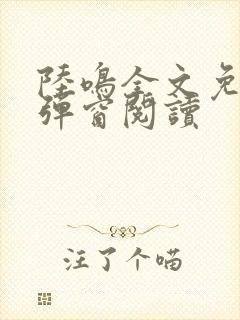 陸鳴全文免
彈窗閱讀
注了个喵